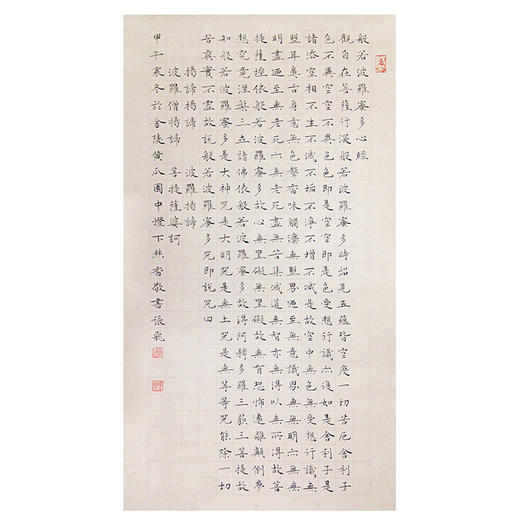 般若波羅蜜多心經
觀自在菩薩行深般若波羅蜜多時炤見五蘊皆空度一切苦厄舍利子
色不異空空不異色色即是空空即是色受想行識亦復如是舍利子是
諸法空相不生不滅不垢不淨不增不減是故空中無色無受想行識無
眼耳鼻舌身意無色聲香味觸法無眼界乃至無意識界無無明亦無無
明盡乃至無老死亦無老死盡無苦集滅道無智亦無得以無所得故菩
提薩埵依般若波羅蜜多故心無罣礙無罣礙故無有恐怖遠離顛倒夢
想究竟涅槃三世諸佛依般若波羅蜜多故得阿耨多羅三藐三菩提故
知般若波羅蜜多是大神咒是大明咒是無上咒是無等等咒能除一切
苦真實不虛故說般若波羅蜜多咒即說咒曰
揭諦揭諦 波羅揭諦
波羅僧揭諦 菩提薩婆訶
甲午寒冬於金陵黃瓜園中燈下焚香敬書張